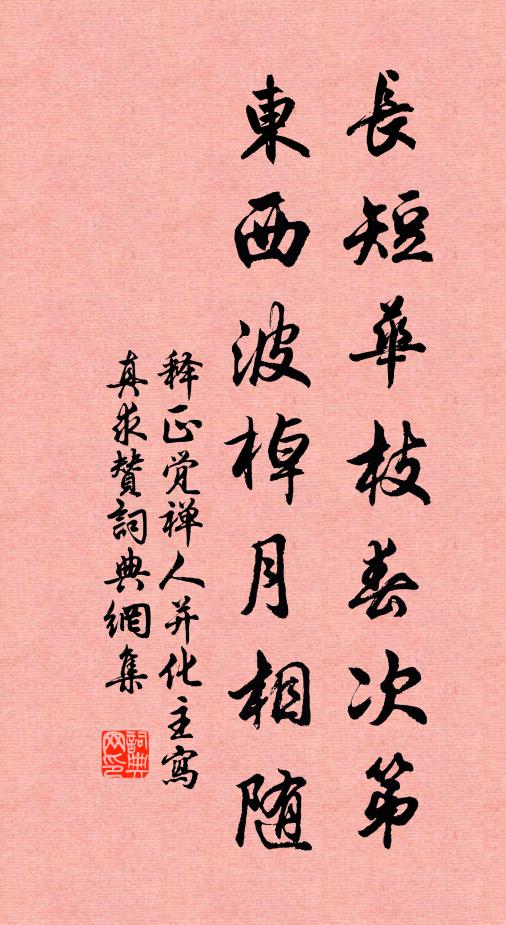 長短華枝春次第
東西波棹月相随
释正觉禅人并化主寫
真求贊詞典網集
詞典網印